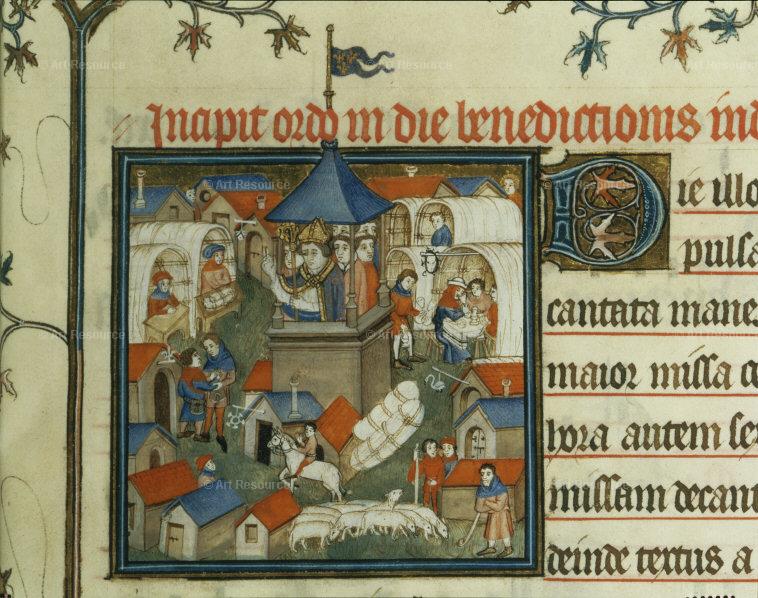 Incipit ordo in die benedictionis ind
Die illo
pulsa
cantata mane
maior missa ce
hora autem ser
missam decant
deinde textus a
© Art Resource
© Art Resource
© Art Resource
© Art Resource
© Art Resource
© Art Resource
© Art Resource
© Art Resource
© Art Resource
© Art Resource
© Art Resource